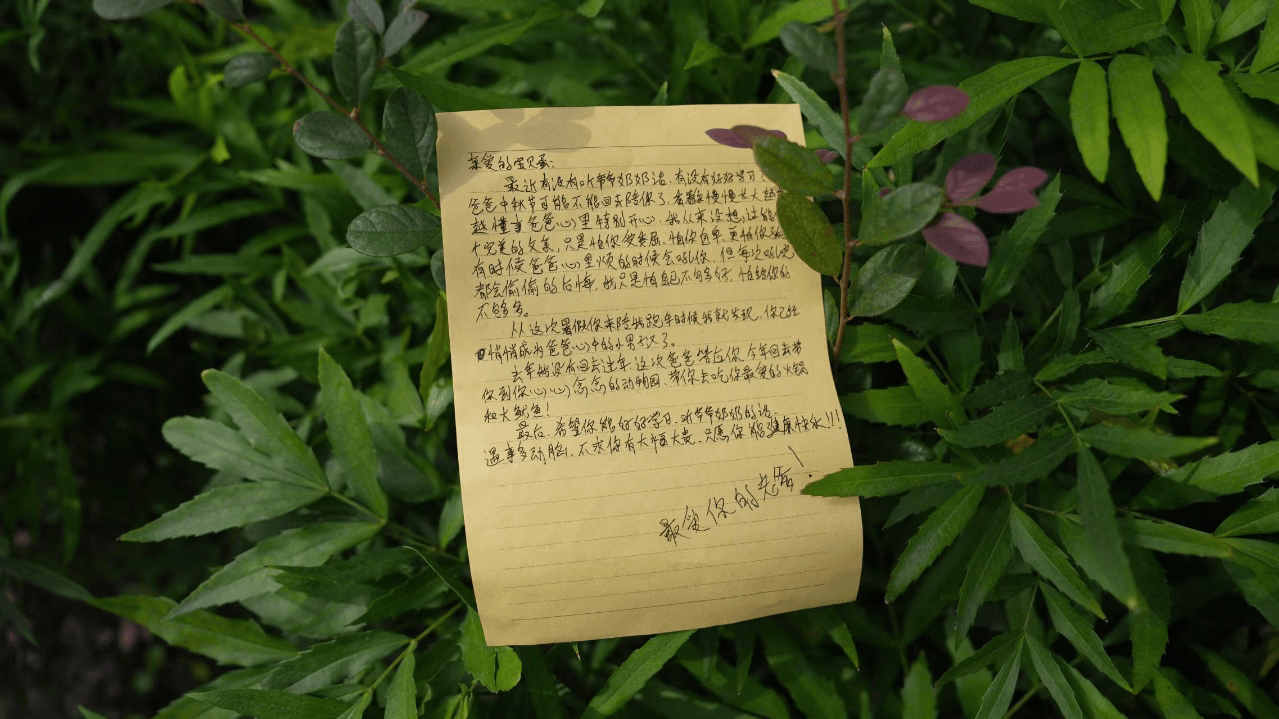 亲爱的宝贝蛋:
最近有没有听爷爷奶奶话,有没有好好
爸爸中秋节可能不能回去陪你了,看着你慢慢长大越
越懂事爸爸心里特别开心,我从来没想过能
个完美的父亲,只是怕你受委屈,怕你
有时候爸爸心里烦的时候会吼你,但每次吼完
都会偷偷的后悔,我只是怕自己不够好,怕给你的
不够多。
从这次暑假你来陪我跑车时候我就发现,你已经
悄悄成为爸爸心中的小男子汉了。
去年我没有回去过年,这次爸爸答应你,今年回去带
你到你心心念念的动物园,带你去吃你最爱的火锅
和大鱿鱼!
最后,希望你能好好学习,听爷爷奶奶的话,
遇事多动脑,不求你有大福大贵,只愿你能健康快乐!!!
最爱你的老爸!